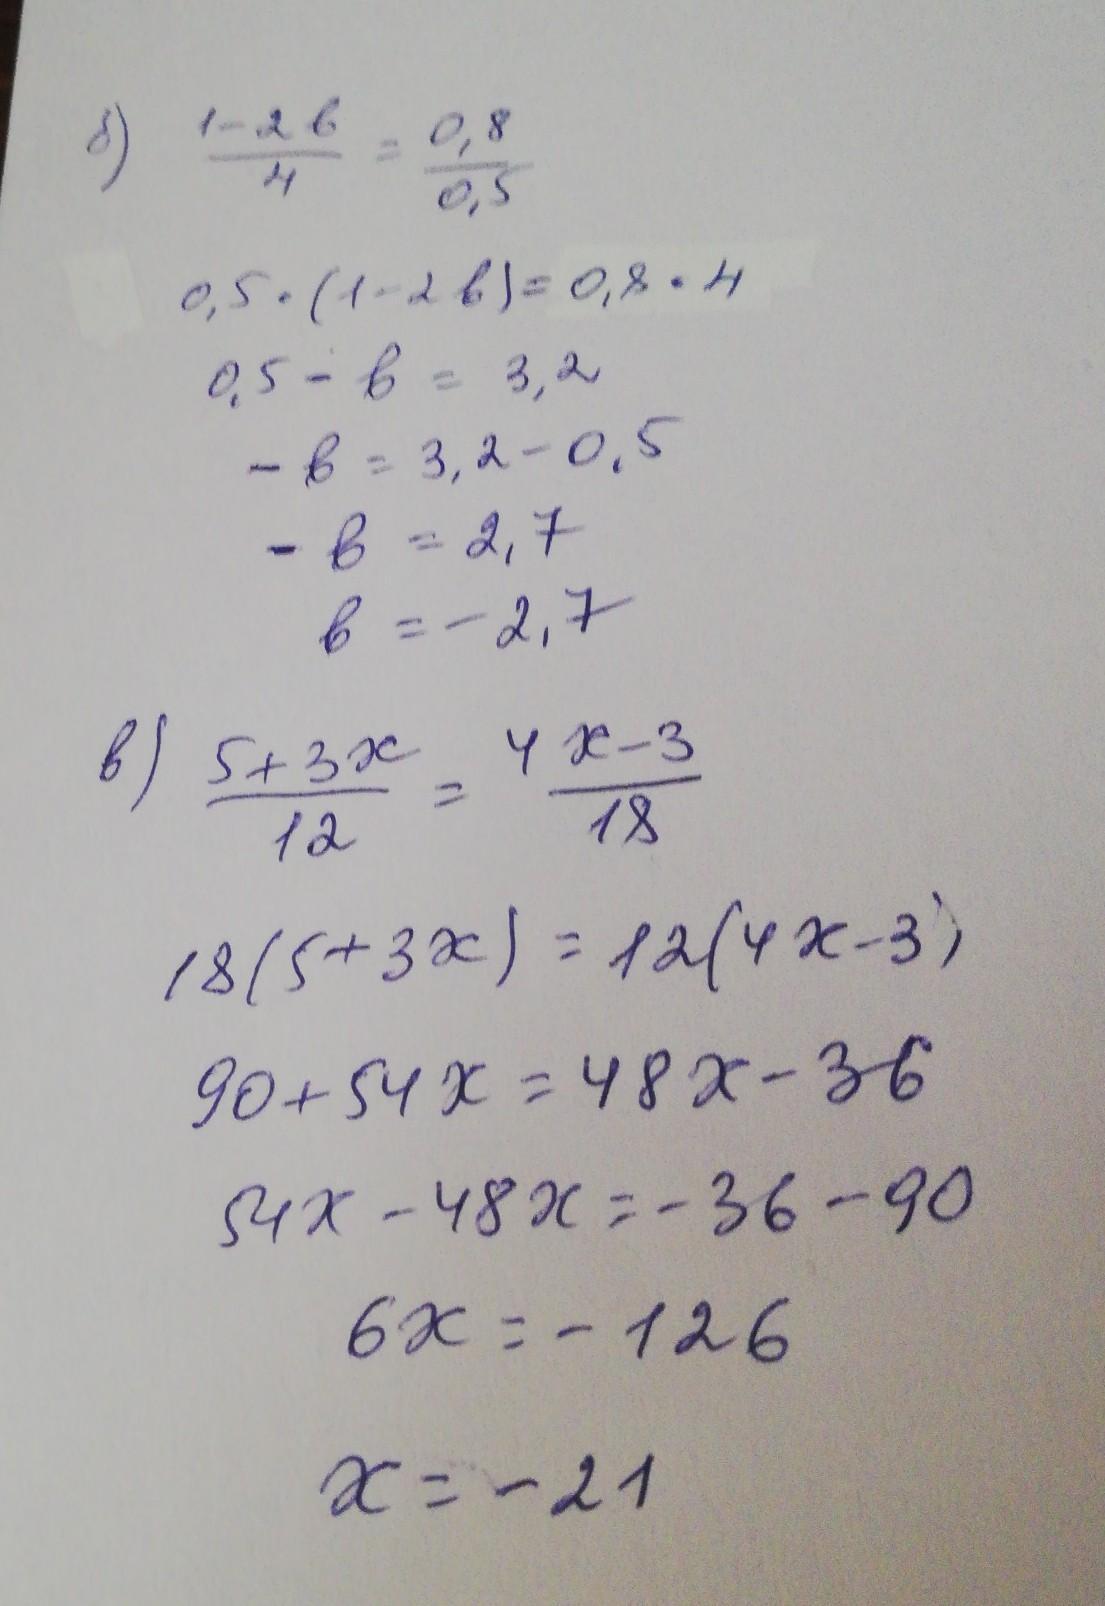 б) (1-2в)/4 = 0,8/0,5
0,5·(1-2в)=0,8·4
0,5-в=3,2
-в=3,2-0,5
-в=2,7
в=-2,7
в) (5+3x)/12 = (4x-3)/18
18(5+3x)=12(4x-3)
90+54x=48x-36
54x-48x=-36-90
6x=-126
x=-21